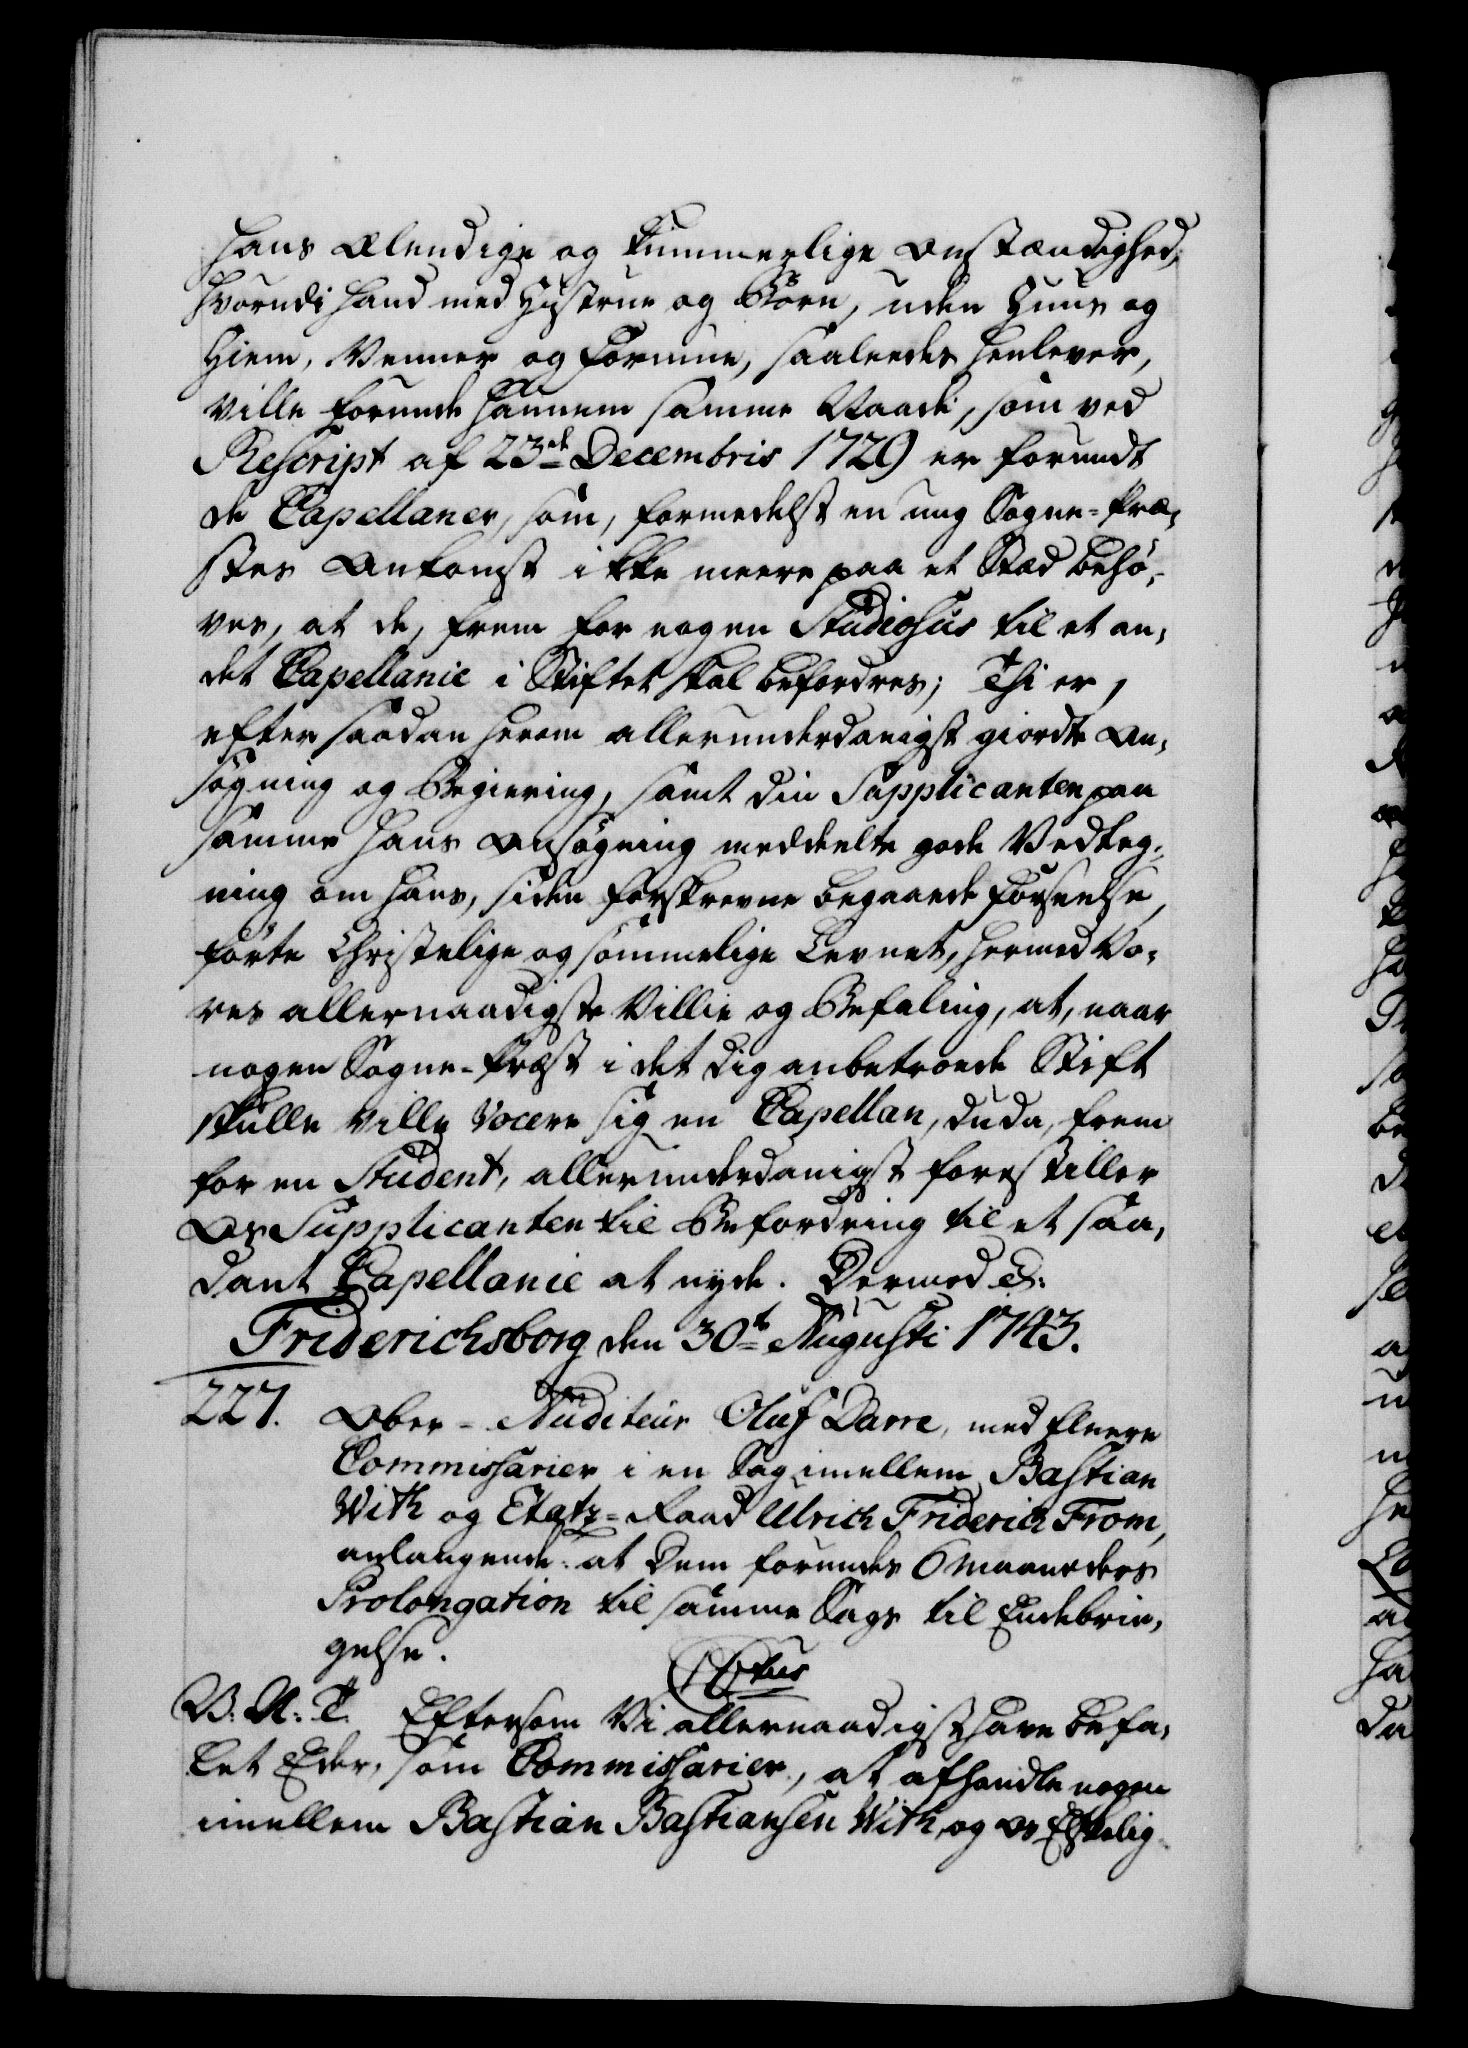 hans Elendige og kummerlige Omstændighed,
hvorudi hand med Hustrue og Børn, uden Huus og
Hiem, Venner og Formue, saaledes henlever,
ville forunde hannem samme Naade, som ved
Rescript af 23de Decembris 1729 er forundt
de Capellaner, som, formedelst en ung Sogne-Præ-
stes Ankomst ikke meere paa et Stæd behø-
ves, at de, frem for nogen Studiosus til et an-
det Capellanie i Stiftet skal befordres; Thi er,
efter saadan herom allerunderdanigst giordte An-
søgning og Begiering, samt din Supplicanten paa
samme hans Ansøgning meddeelte gode Vedteg-
ning om hans, siden forskrevne begaaede Forseelse,
førte Christelige og sømmelige Levnet, hermed Vo-
res allernaadigste Villie og Befaling, at, naar
nogen Sogne-Præst i det dig anbetroede Stift
skulle ville vocere sig en Capellan, du da, frem
for en Student, allerunderdanigst forestiller
Os Supplicanten til Befordring til et saa-
dant Capellanie at nyde. Dermed &:
Friderichsborg den 30te Augusti 1743.
227. Ober-Auditeur Oluf Darre, med fleere
Commissarier i en Sag imellem Bastian
With og Etatz-Raad Ulrich Friderich From,
anlangende: at Dem forundes 6 Maaneders
Prolongation til samme Sags til Endebrin-
gelse.
V: A: T. Eftersom Vi allernaadigst have befa-
let Eder, som Commissarier, at afhandle nogen
imellem Bastian Bastiansen With, og os Elskelig